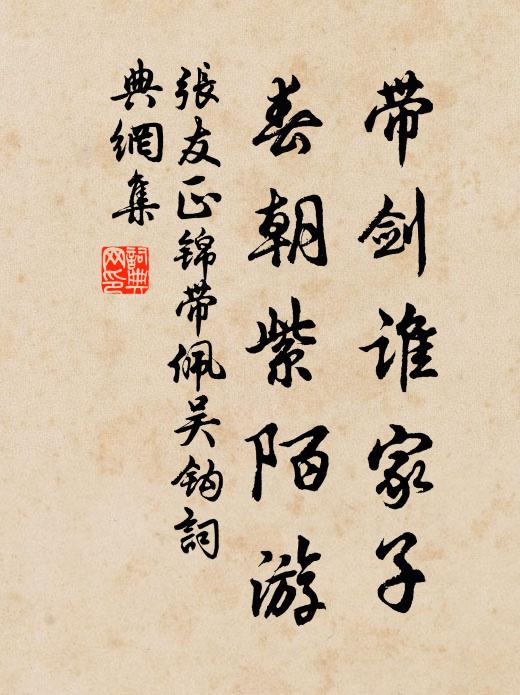 带剑谁家子
春朝紫陌游
張友正錦带佩吴鈎詞
典網集
詞典
网印